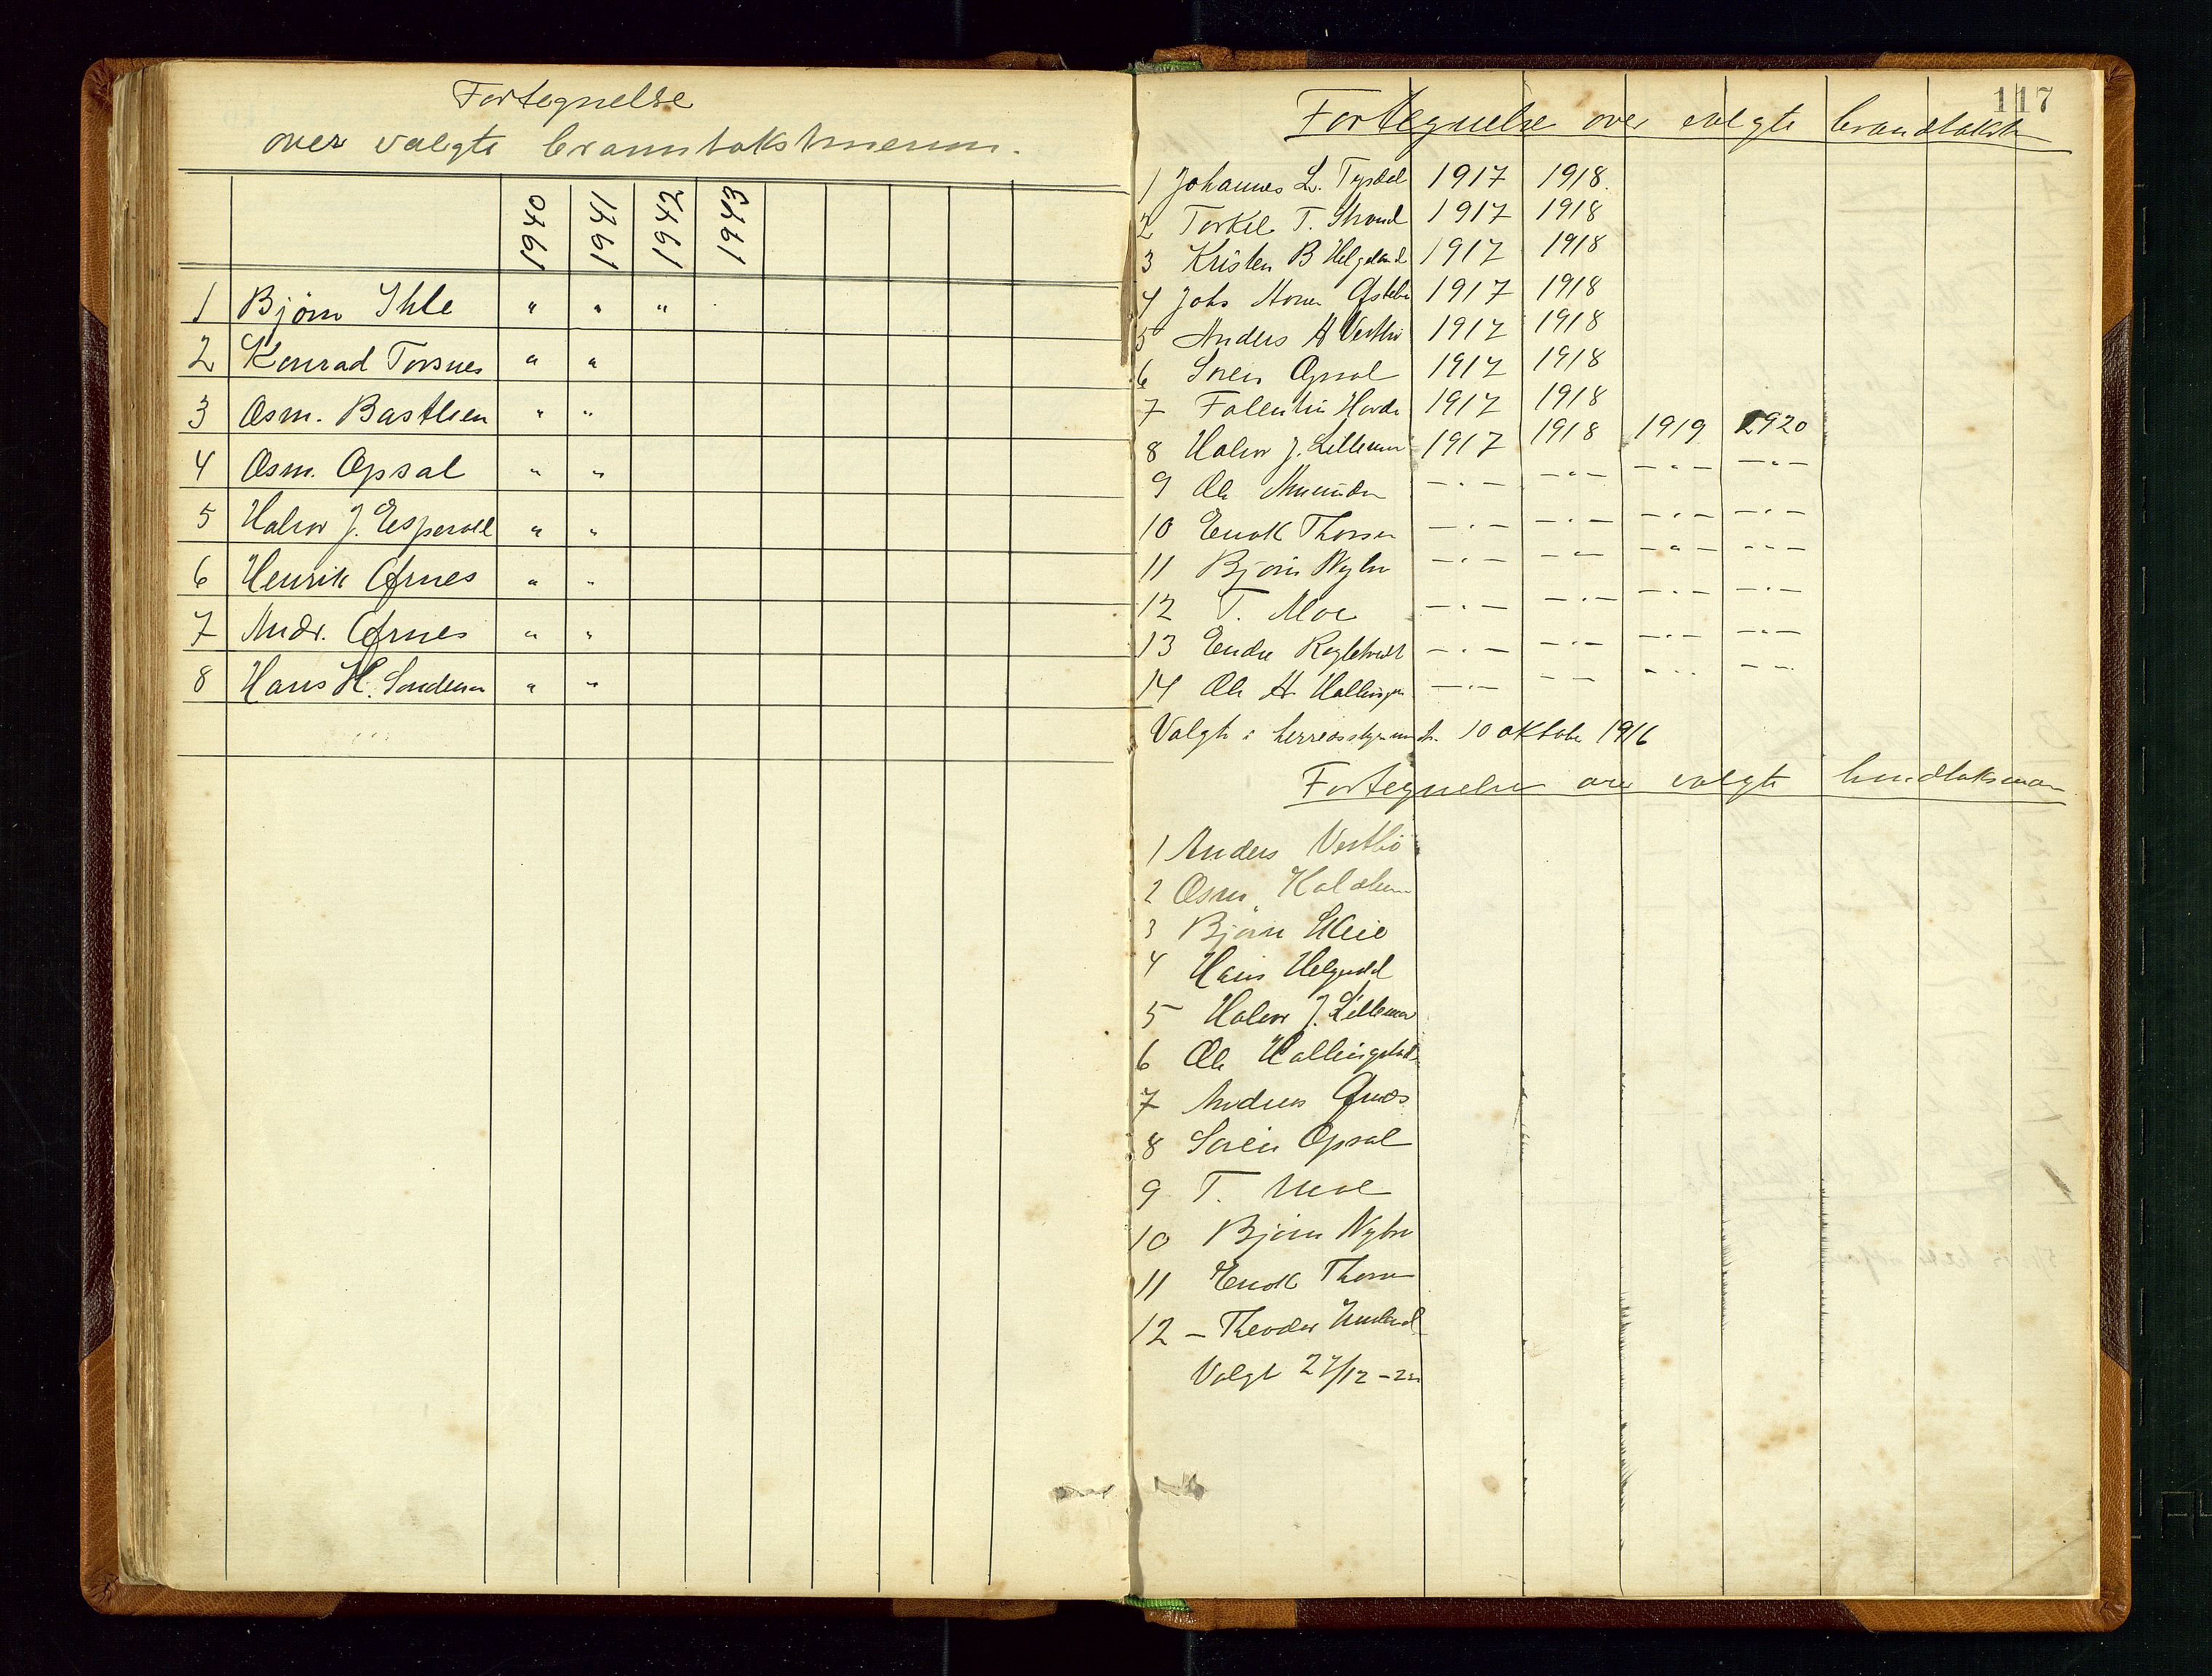 Fortegnelse
over valgte branntakstmenn.
1940 1941 1942 1943
1 Bjørn Ihle " " "
2 Konrad Torsnes " "
3 Osm. Bastlien " "
4 Osm. Opsal " "
5 Halvor J. Espevoll " "
6 Henrik Øfnes " "
7 Andr. Øfnes " "
8 Hans H. " "
117
Fortegnelse over valgte brandtakstm
1 Johannes L. Tysdal 1917 1918.
2 Torkel T. Strand 1917 1918
3 Kristen B Helgeland 1917 1918
4 Johs 1917 1918
5 Anders A Vestbø 1917 1918
6 Søren Opsal 1917 1918
7 Falentin Hovda 1917 1918
8 Halvor J. Lillemoen 1917 1918 1919 1920
9 Ole — " — — " — — " — — " —
10 Enok Thorsen — " — — " — — " — — " —
11 Bjørn Nybru — " — — " — — " — — " —
12 T. Moe — " — — " — — " — — " —
13 Endre — " — — " — — " — — " —
14 Ole H — " — — " — — " — — " —
Valgt i herredsstyremøte 10 oktober 1916
Fortegnelse over valgte brandtaksmæn
1 Anders Vestbø
2 Osm.
3 Bjørn Skeie
4 Hans
5 Halvor J. Lillemoen
6 Ole Hallingstad
7 Andreas Øfnes
8 Søren Opsal
9 T. Moe
10 Bjørn Nybru
11 Enok Thorsen
12 – Theodor
Valgt 27/12 – 22